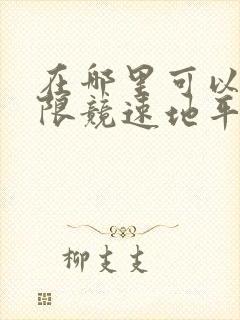 在哪里可以
限竞速地平
柳支支